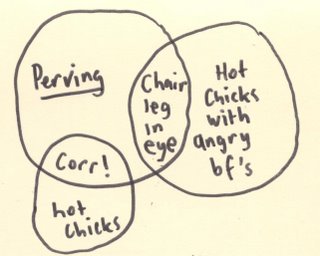 Perving
Chair
leg
in
eye
Hot
Chicks
with
angry
bf's
Corr!
hot
chicks